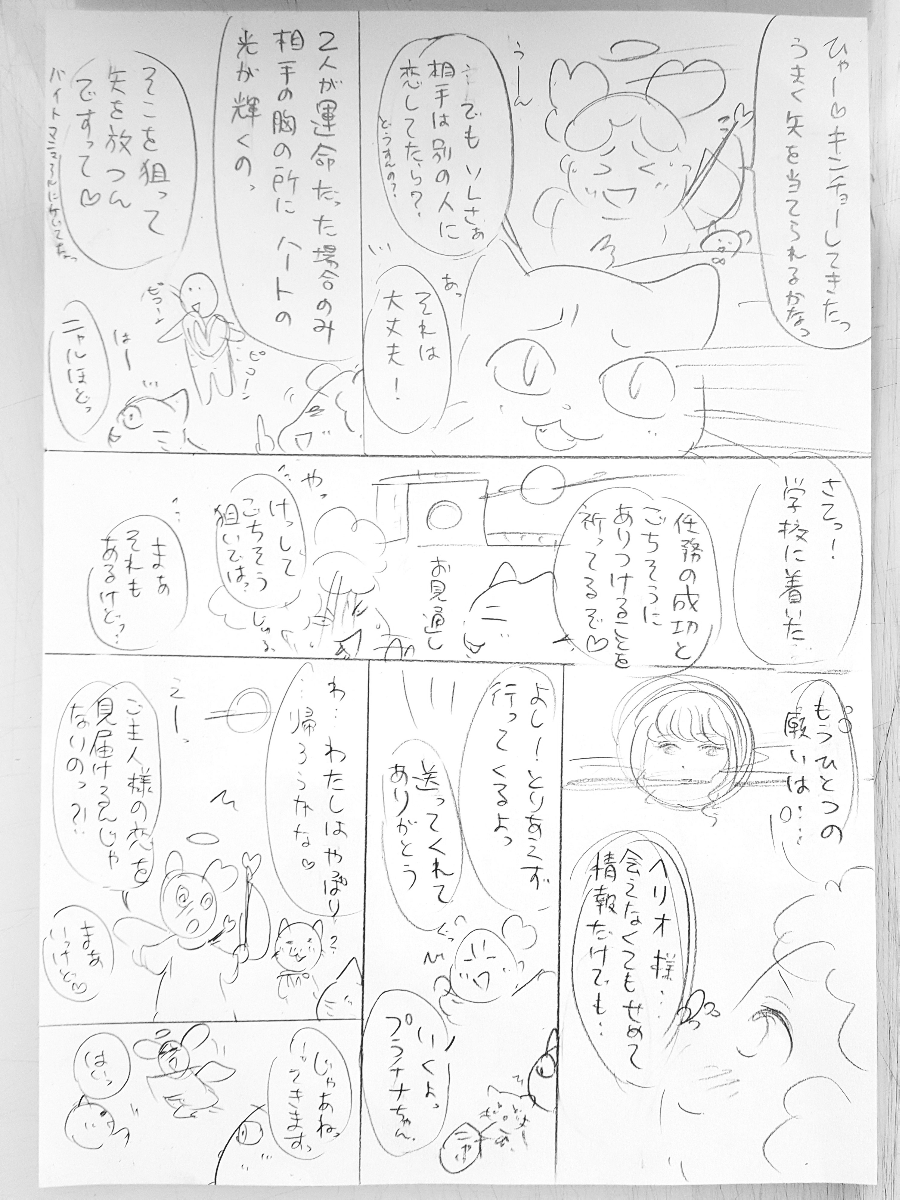 ひゃー♡キンチョーしてきたっ
うまく矢を当てられるかなっ
うーん
…でもソレさぁ
相手は別の人に
恋してたら?
どうすんの?
あっ
それは
大丈夫!
2人が運命だった場合のみ
相手の胸の所にハートの
光が輝くのっ
そこを狙って
矢を放つん
ですって♡
ピコーン
ピコーン
はー
ニャルほどっ
さてっ!
学校に着いた
任務の成功と
ごちそうに
ありつけることを
祈ってるぞ♡
お見通し
やっ
けっして
ごちそう
狙いではっ
じゅる
まぁ
それも
あるけどっ?
もうひとつの
願いは…
ヘリオ様…
会えなくてもせめて
情報だけでも…
よし!とりあえず
行ってくるよっ
送ってくれて
ありがとう
ぐっ
いくよっ
プラチナちゃん
わ…わたしはやっぱり
…帰ろうかな♡
?
えーっ
ご主人様の恋を
見届けるんじゃ
ないのっ?!
まぁ
いっけど♡
じゃあねっ
いってきますっ
はいっ